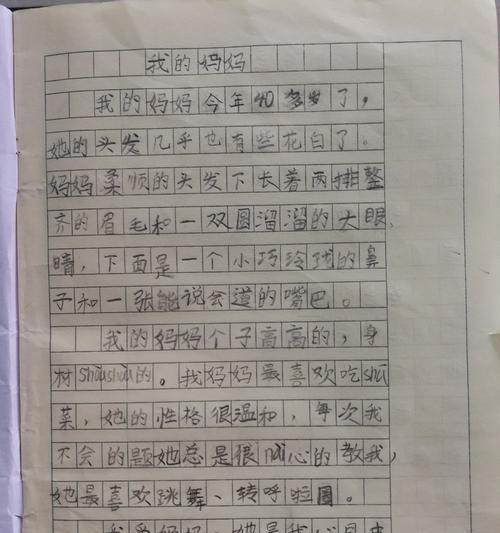 我的妈妈
我的妈妈今年40多岁了，
她的头发几乎也有些花白了。
妈妈柔顺的头发下长着两排整
齐的眉毛和一双圆溜溜的大眼
睛，下面是一个小巧玲珑的鼻
子和一张能说会道的嘴巴。
我的妈妈个子高高的，身
材shòushou的。我妈妈最喜欢吃shū
菜，她的性格很温和，每次我
不会的题她总是很nài心的教我，
她最喜欢跳舞、转呼啦圈。
我爱妈妈，她是我心目中